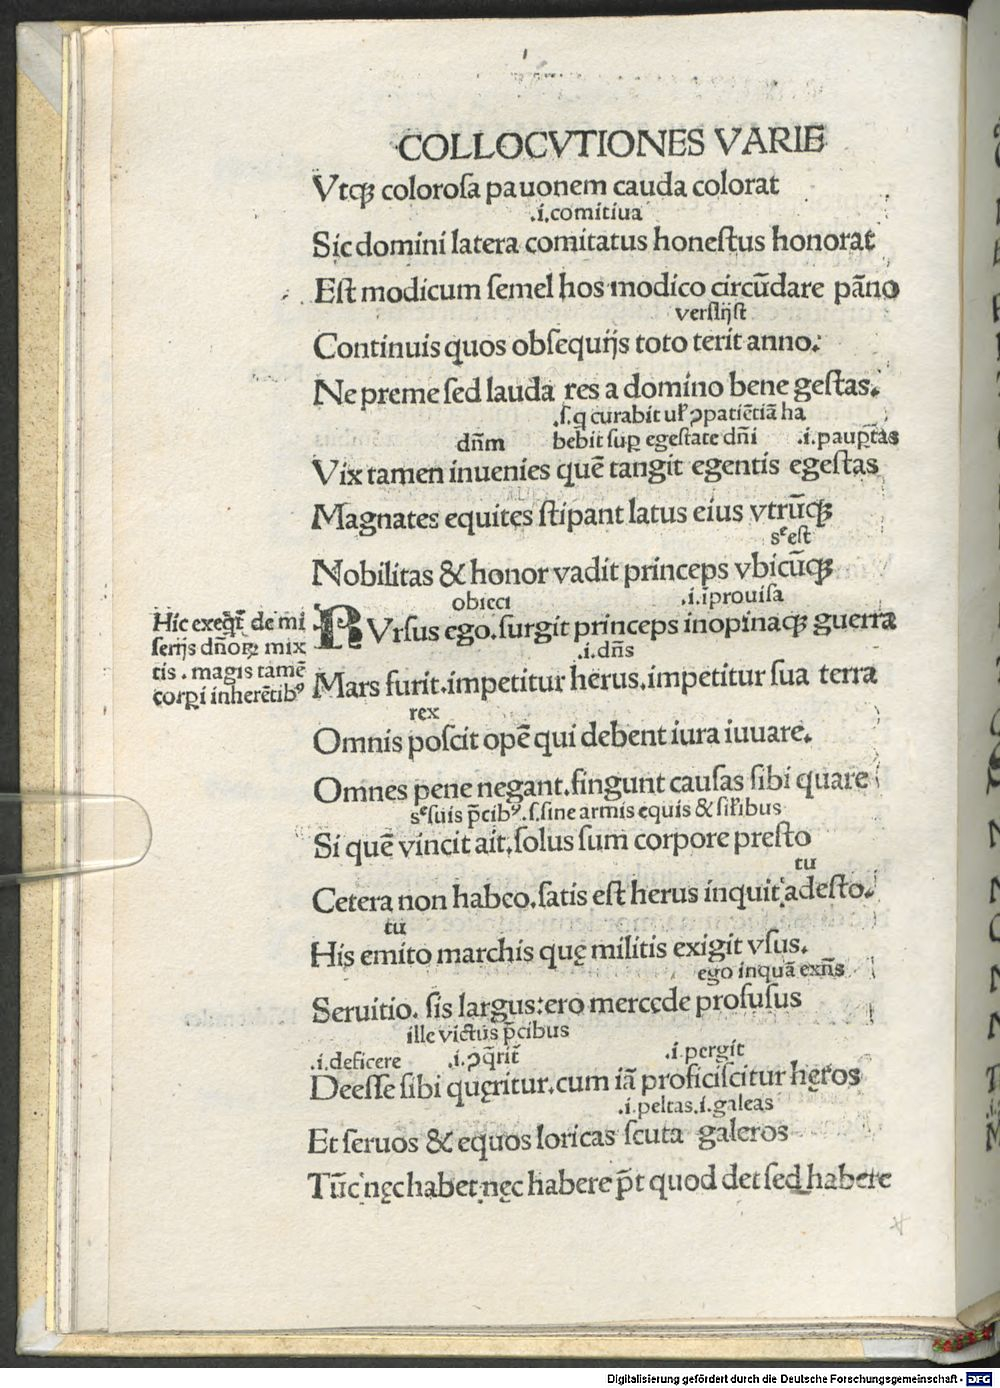 COLLOCVTIONES VARIE
Vtqꝫ coloroſa pauonem cauda colorat
.i.comitiua
Sic domini latera comitatus honeſtus honorat
Eſt modicum ſemel hos modico circūdare pāno
verſlijſt
Continuis quos obſequijs toto terit anno.
Ne preme ſed lauda res a domino bene geſtas.
.ſ.q curabit ul̕ ꝓpatiētiā ha
dn̄m bebit ſuꝑ egeſtate dn̄i .i.paup̱tas
Vix tamen inuenies quē tangit egentis egeſtas
Magnates equites ſtipant latus eius vtrūqꝫ
sᵉeſt
Nobilitas & honor vadit princeps vbicūqꝫ
obieci .i.iprouiſa
RVrſus ego.ſurgit princeps inopinaqꝫ guerra
Hic exeq̄t̄ de mi
ſerijs dn̄oꝝ mix
tis . magis tamē
corpi inherētibꝰ
.i.dn̄s
Mars furit.impetitur herus.impetitur ſua terra
rex
Omnis poſcit opē qui debent iura iuuare.
Omnes pene negant.fingunt cauſas ſibi quare
sᵉſuis p̄cibꝰ.ſ.ſine armis equis & ſil̕ibus
Si quē vincit ait.ſolus ſum corpore preſto
tu
Cetera non habeo.ſatis eſt herus inquit adeſto.
tu
His emito marchis quę militis exigit vſus.
ego inquā exn̄s
Seruitio. ſis largus:ero mercede profuſus
ille victus p̄cibus
.i.deficere .i.ꝓq̄rit̄ .i.pergit
Deeſſe ſibi quęritur.cum iā proficiſcitur hęros
.i.peltas.i.galeas
Et ſeruos & equos loricas ſcuta galeros
Tūc nęc habet nęc habere p̄t quod det ſed habere
Digitalisierung gefördert durch die Deutsche Forschungsgemeinschaft - DFG